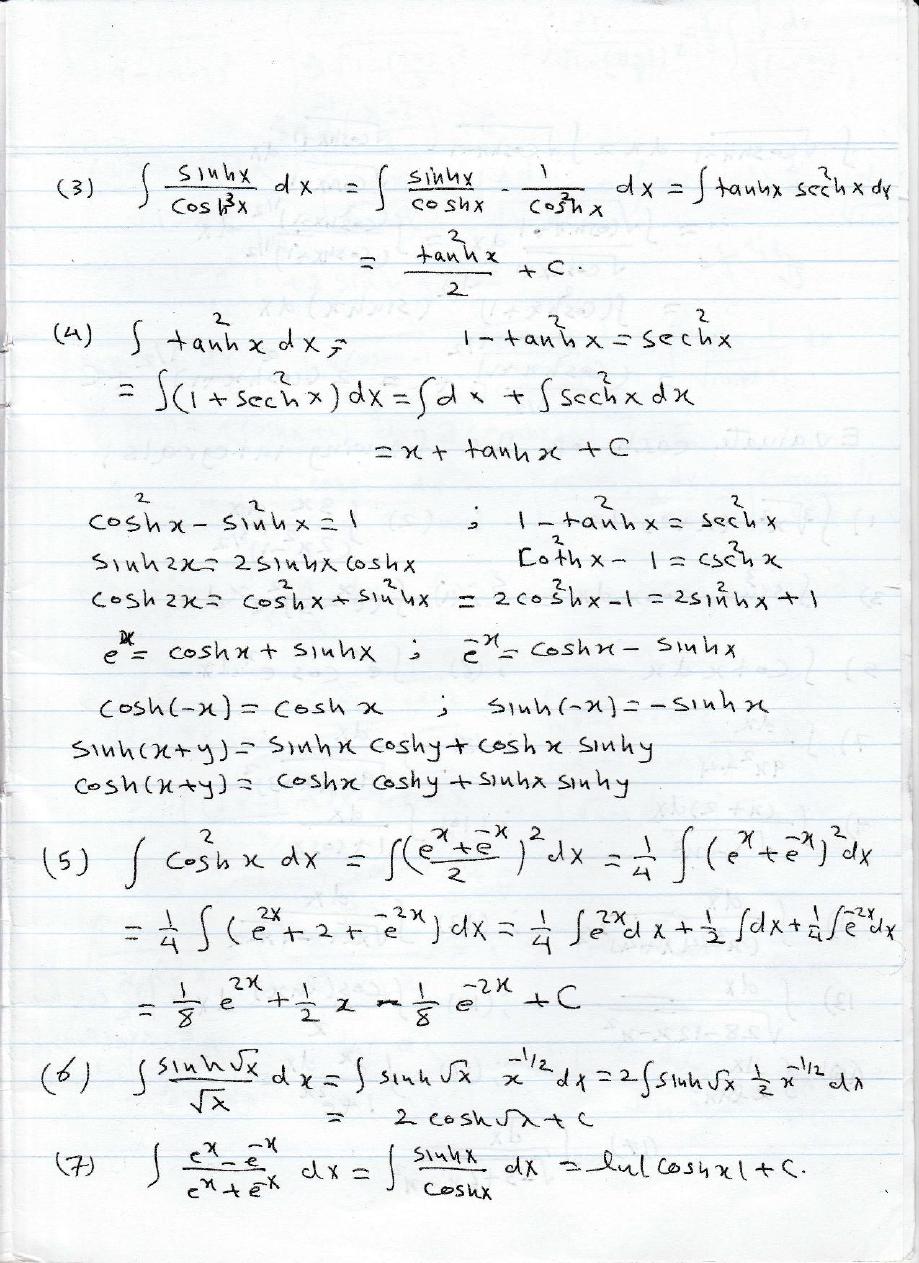 (3) ∫ sinhx/cosh³x dx = ∫ sinhx/coshx · 1/cosh²x dx = ∫ tanhx sech²x dx
= tanh²x/2 + C.
(4) ∫ tanh²x dx ; 1 - tanh²x = sech²x
= ∫(1 + sech²x) dx = ∫dx + ∫ sech²x dx
= x + tanh x + C
cosh²x - sinh²x = 1 ; 1 - tanh²x = sech²x
sinh2x = 2sinhx coshx coth²x - 1 = csch²x
cosh2x = cosh²x + sinh²x = 2cosh²x - 1 = 2sinh²x + 1
eˣ = coshx + sinhx ; e⁻ˣ = coshx - sinhx
cosh(-x) = cosh x ; sinh(-x) = -sinhx
sinh(x+y) = sinhx coshy + coshx sinhy
cosh(x+y) = coshx coshy + sinhx sinhy
(5) ∫ cosh²x dx = ∫((eˣ+e⁻ˣ)/2)² dx = 1/4 ∫(eˣ+e⁻ˣ)² dx
= 1/4 ∫(e²ˣ + 2 + e⁻²ˣ) dx = 1/4 ∫e²ˣdx + 1/2 ∫dx + 1/4 ∫e⁻²ˣdx
= 1/8 e²ˣ + 1/2 x - 1/8 e⁻²ˣ + C
(6) ∫ sinh√x/√x dx = ∫ sinh√x x^(-1/2) dx = 2∫sinh√x 1/2 x^(-1/2) dx
= 2 cosh√x + C
(7) ∫ (eˣ-e⁻ˣ)/(eˣ+e⁻ˣ) dx = ∫ sinhx/coshx dx = ln|coshx| + C.